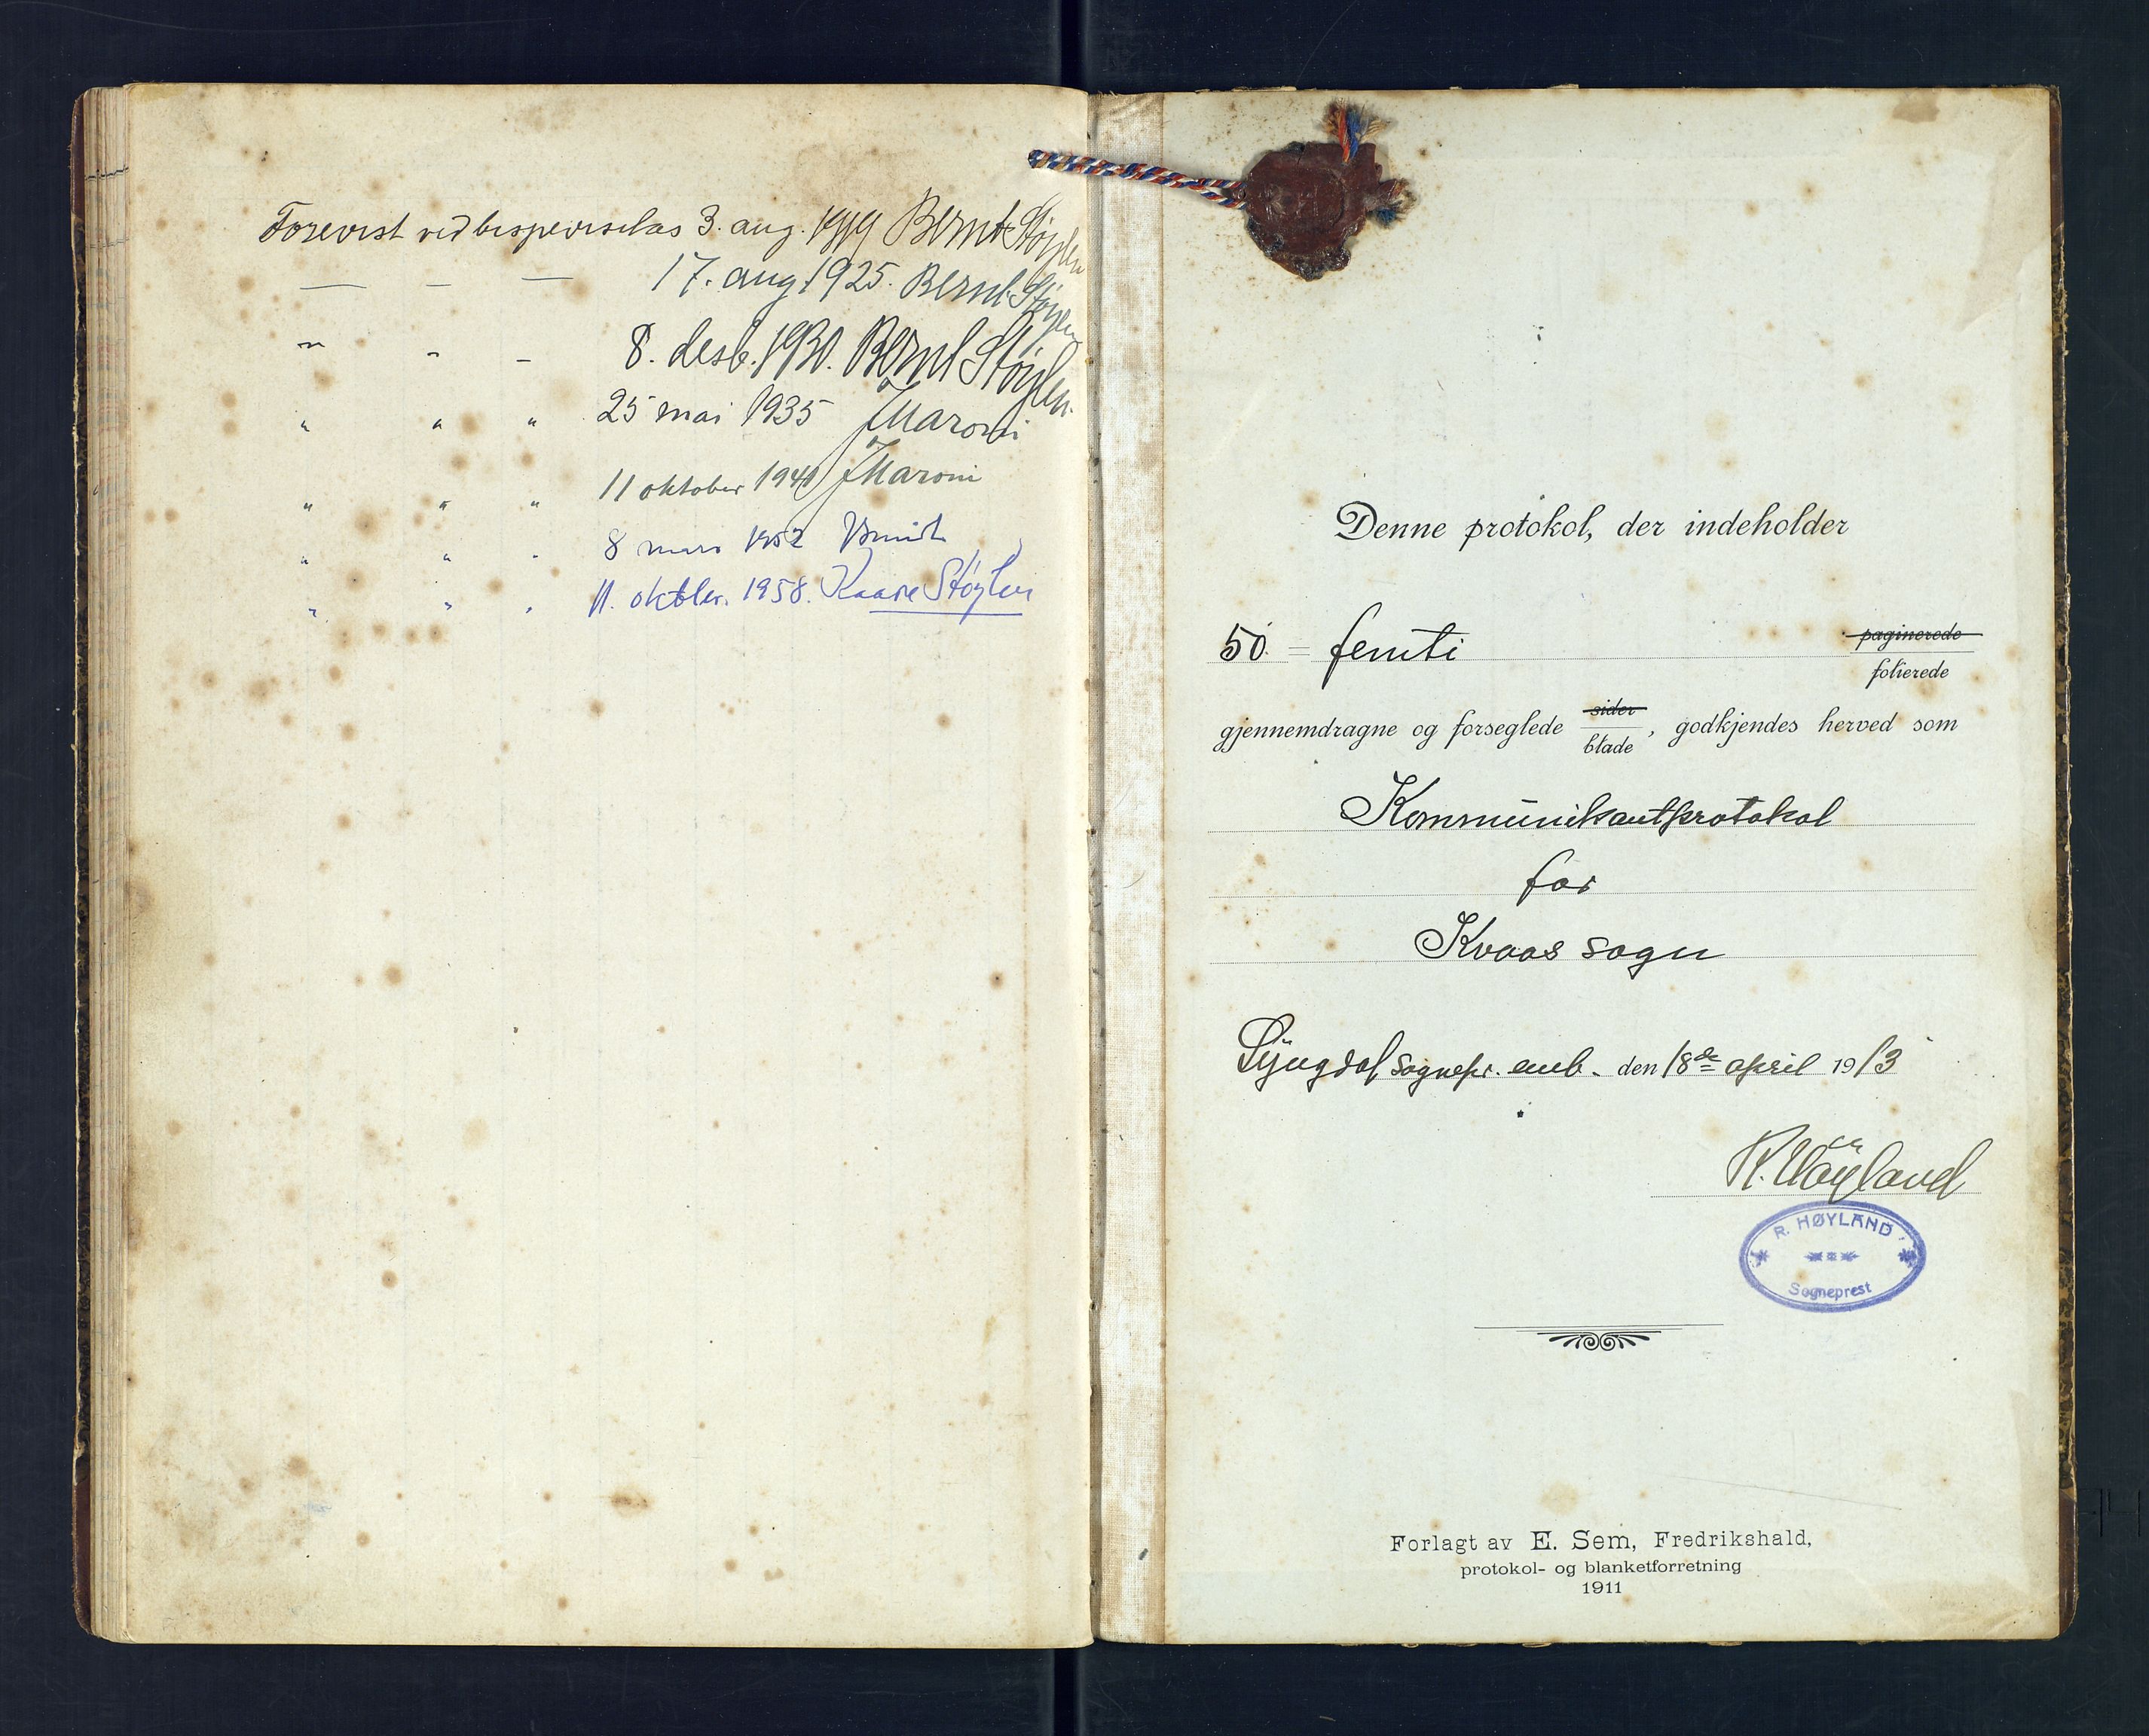 Forevist ved bispevisitas 3. aug. 1919 Bernt Støylen
— - — 17. aug 1925. Bernt Støylen
" - - 8. desb. 1930. Bernt Støylen.
" " " 25 mai 1935 J Maroni
" " " 11 oktober 1940 J Maroni
" " " 8 mars 1952
" " " 11. oktober. 1958. Kaare Støylen
Denne protokol, der indeholder
50 = femti paginerede
folierede
gjennemdragne og forseglede sider
blade, godkjendes herved som
Kommunikantprotokol
for
Kvaas sogn
Lyngdal sognepr. emb. den 18de april 1913
R. Høyland
R. HØYLAND
Sogneprest
Forlagt av E. Sem, Fredrikshald,
protokol- og blanketforretning
1911